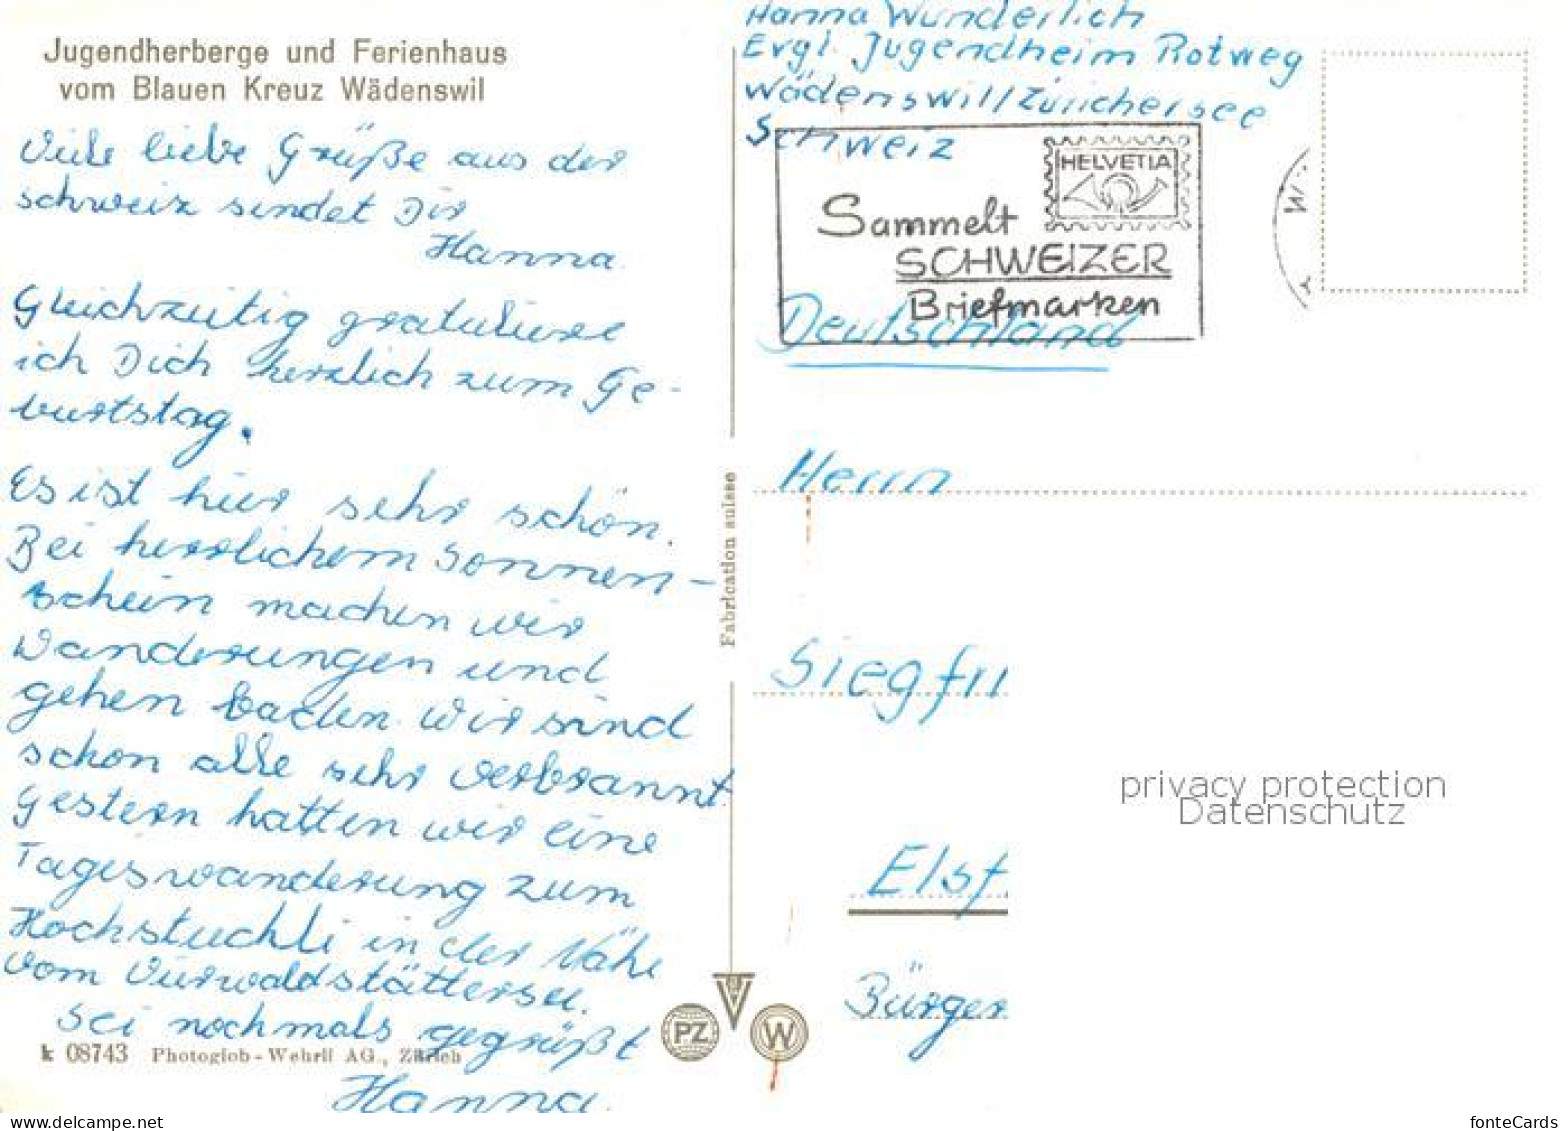 Jugendherberge und Ferienhaus
vom Blauen Kreuz Wädenswil
Viele liebe Grüße aus der
schweiz sendet Dir
Hanna.
Gleichzeitig gratuliere
ich Dich herzlich zum Ge-
burtstag.
Es ist hier sehr schön.
Bei herrlichem Sonnen-
schein machen wir
Wanderungen und
gehen baden. Wir sind
schon alle sehr verbrannt.
Gestern hatten wir eine
Tageswanderung zum
Hochstuckli in der Nähe
vom Vierwaldstättersee.
Sei nochmals gegrüßt
Hanna.
k 08743 Photoglob-Wehrli AG., Zürich
Fabrication suisse
PZ
W
Hanna Wunderlich
Evgl. Jugendheim Rotweg
Wädenswill/Zürichersee
Schweiz
HELVETIA
Sammelt
SCHWEIZER
Briefmarken
Deutschland
Herrn
Siegfri
Elsf
Bürger
privacy protection
Datenschutz
fonteCards